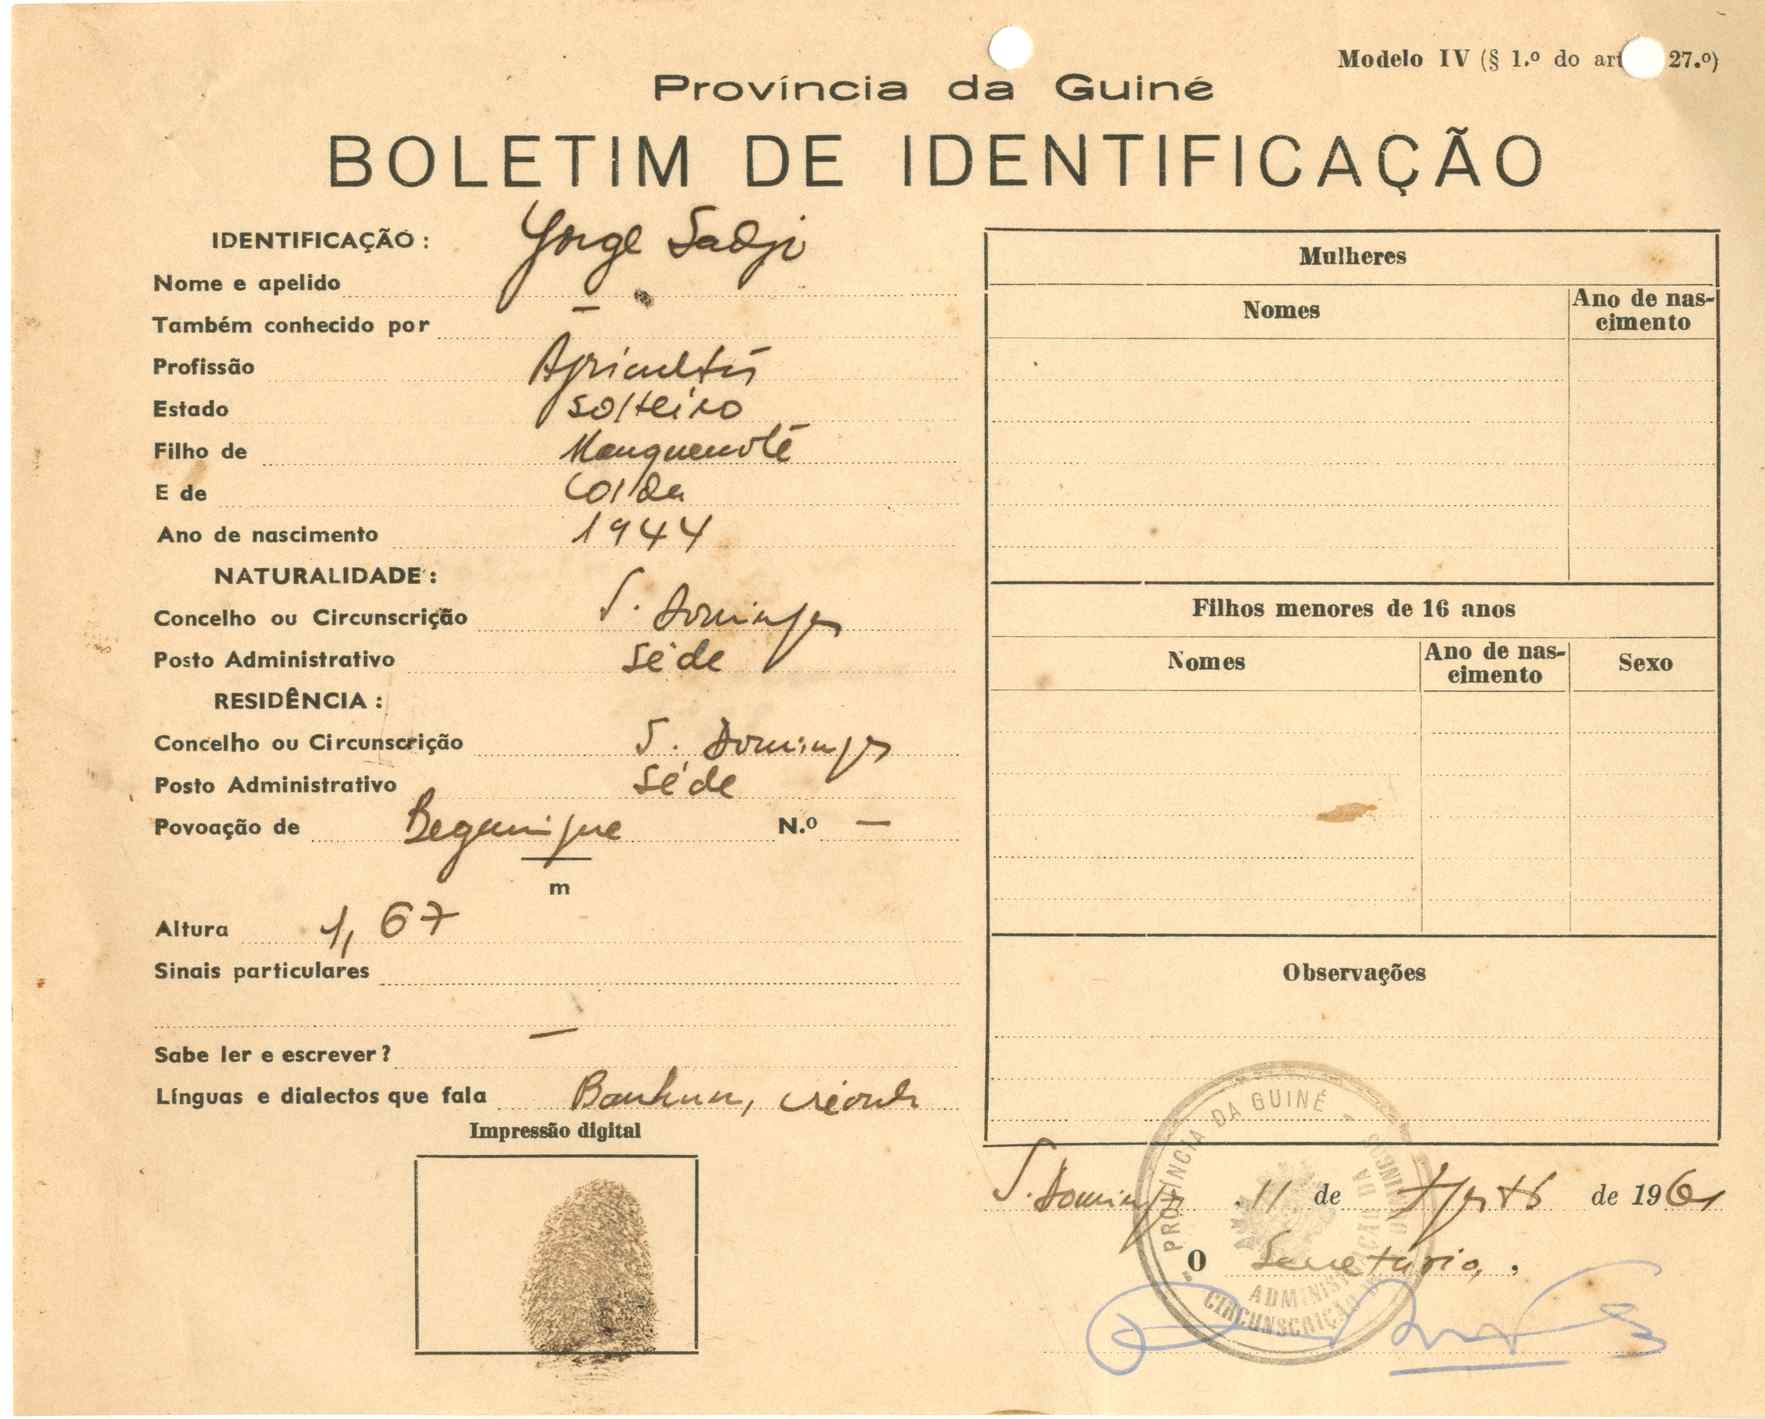 Modelo IV (§ 1.º do art 27.º)
Província da Guiné
BOLETIM DE IDENTIFICAÇÃO
IDENTIFICAÇÃO :
Nome e apelido Jorge Sadji
Também conhecido por —
Profissão Agricultor
Estado solteiro
Filho de
E de
Ano de nascimento 1944
NATURALIDADE :
Concelho ou Circunscrição S. Domingos
Posto Administrativo Séde
RESIDÊNCIA :
Concelho ou Circunscrição S. Domingos
Posto Administrativo Séde
Povoação de N.º —
m
Altura 1,67
Sinais particulares
—
Sabe ler e escrever?
Línguas e dialectos que fala Banhun, crioulo
Impressão digital
Mulheres
Nomes
Ano de nas-
cimento
Filhos menores de 16 anos
Nomes
Ano de nas-
cimento
Sexo
Observações
PROVÍNCIA DA GUINÉ
ADMINISTRAÇÃO DA
CIRCUNSCRIÇÃO DE S. DOMINGOS
S. Domingos 11 de Agosto de 1961
O Secretário,